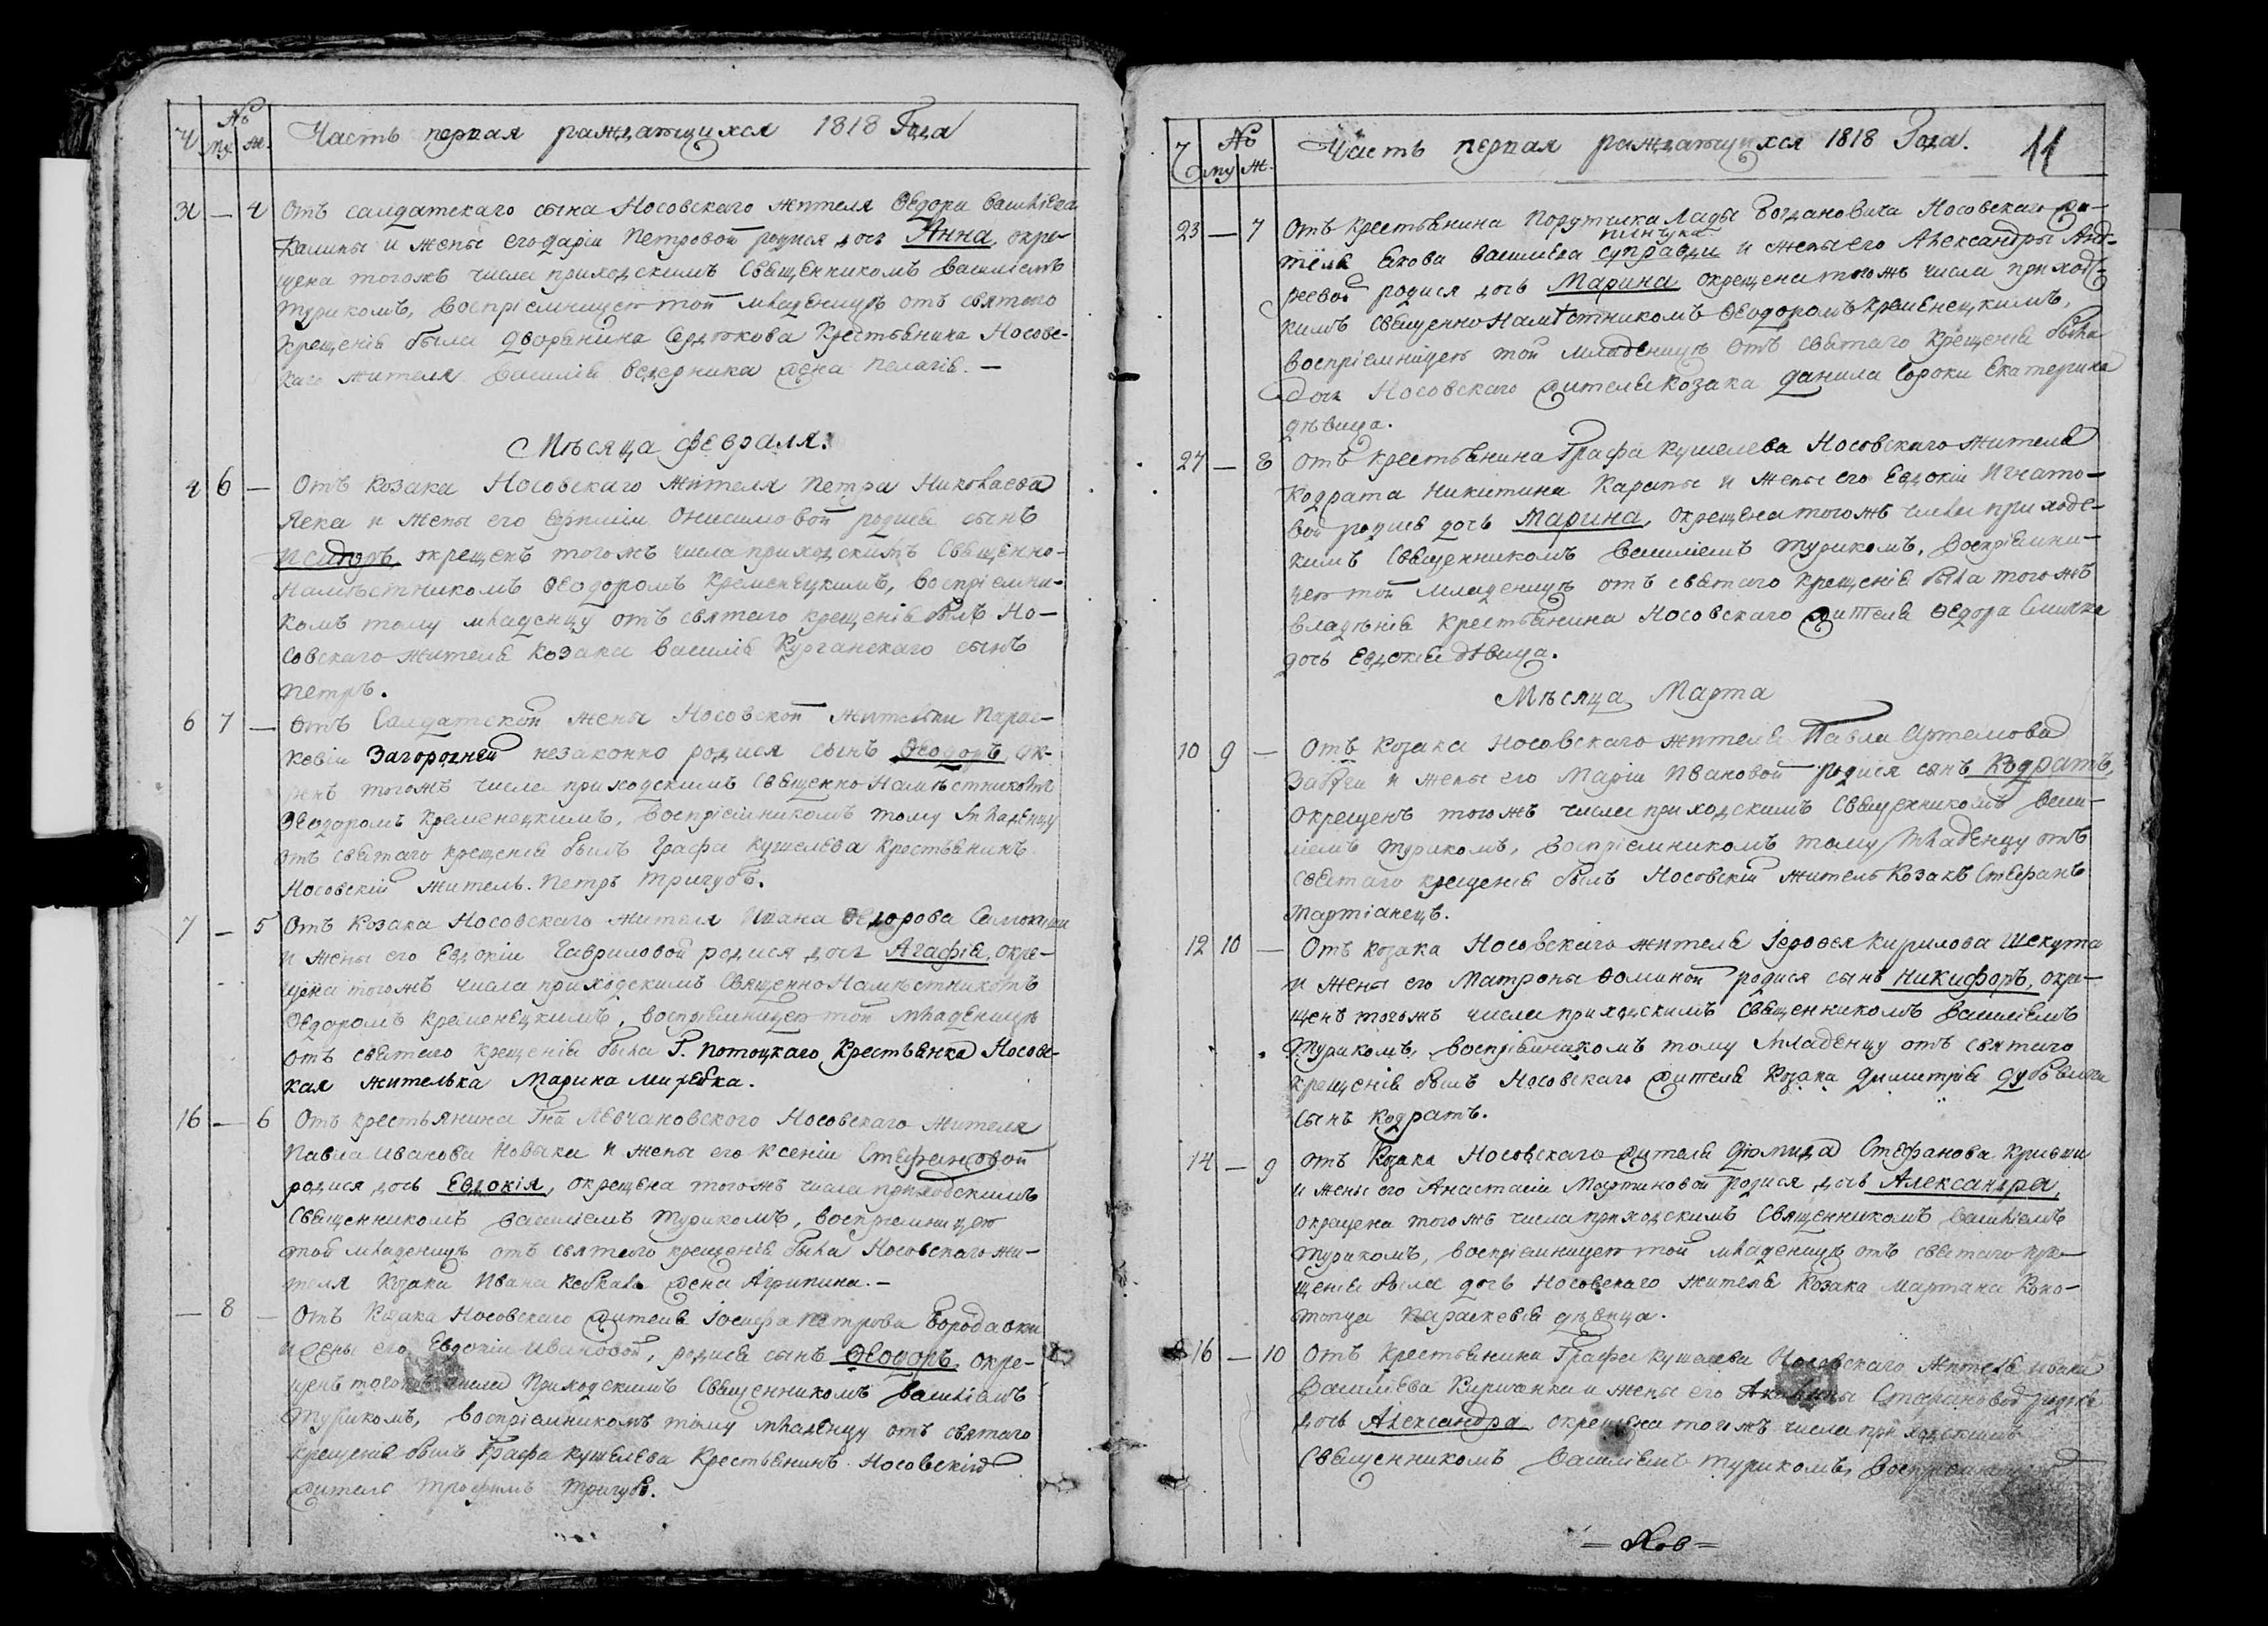 Ч № Часть первая раждающихся 1818 Года
му. ж.
31 — 4 Отъ салдатскаго сына Носовскаго жителя Ѳедора Василіева
и жены его Даріи Петровой родися дочь Анна, окре-
щена тогожъ числа приходскимъ Священникомъ Василіемъ
Туриkомъ, воспріемницею той младеницѣ отъ святаго
крещенія была дворянина Сердюкова крестьянина Носовс-
каго жителя Василія жена Пелагія. —
Мѣсяца Февраля.
4 6 — Отъ Козака Носовскаго жителя Петра Николаева
и жены его Онисимовой родися сынъ
Исидоръ, окрещенъ тогожъ числа приходскимъ Священно-
намѣстникомъ Ѳеодоромъ Кременецкимъ, воспріемни-
комъ тому младенцу отъ святаго крещенія былъ Но-
совскаго жителя Козака Василія Курганскаго сынъ
Петръ.
6 7 — Отъ Салдатской жены Носовской жительки Парас-
кевіи Загородней незаконно родися сынъ Ѳеодоръ, ок-
ренъ тогожъ числа приходскимъ СвященноНамѣстникомъ
Ѳеодоромъ Кременецкимъ, воспріемникомъ тому младенцу
отъ святаго крещенія былъ Графа Кушелева крестьянинъ
Носовскій житель Петръ Тригубъ.
7 — 5 Отъ Козака Носовскаго жителя Ивана Ѳедорова
и жены его Евдокіи Гавриловой родися дочь Агафія, окре-
щена тогожъ числа приходскимъ СвященноНамѣстникомъ
Ѳедоромъ Кременецкимъ, воспріемницею той младеницѣ
отъ святаго крещенія была Г. Потоцкаго Крестьянка Носовс-
кая жителька Марина
16 — 6 Отъ крестьянина Гна Левчановского Носовскаго жителя
Павла Иванова Новака и жены его Ксеніи Стефановой
родися дочь Евдокія, окрещена тогожъ числа приходскимъ
Священникомъ Василіемъ Туриkомъ, воспріемницею
той младеницѣ отъ святаго крещенія была Носовскаго жи-
теля Козака Ивана жена Агрипина. —
— 8 — Отъ Козака Носовскаго жителя Іосифа Петрова Бородавки
и жены его Евдокіи Ивановой, родися сынъ Ѳеодоръ, окре-
щенъ тогожъ числа Приходскимъ Священникомъ Василіемъ
Туриkомъ, воспріемникомъ тому младенцу отъ святаго
крещенія былъ Графа Кушелева Крестьянинъ Носовскій
житель Трофимъ Тригубъ.
Ч № Часть первая раждающихся 1818 Года. 11
му ж.
23 — 7 Отъ крестьянина Порутчика Лады Богдановича Носовскаго жи-
Пинчука
теля Якова Василіева Суправди и жены его Александры Анд-
реевой родися дочь Марина окрещена тогожъ числа приходс-
кимъ СвященноНамѣстникомъ Ѳеодоромъ Кременецкимъ,
воспріемницею той младеницѣ отъ святаго крещенія была
дочь Носовскаго жителя Козака Данила Сороки Екатерина
дѣвица.
27 — 8 Отъ крестьянина Графа Кушелева Носовскаго жителя
Кодрата Никитина и жены его Евдокіи Игнато-
вой родися дочь Марина, окрещена тогожъ числа приходс-
кимъ Священникомъ Василіемъ Туриkомъ. Воспріемни-
цею той младеницѣ отъ святаго крещенія была тогожъ
владѣнія крестьянина Носовскаго жителя Ѳедора
дочь Евдокія дѣвица.
Мѣсяца Марта
10 9 — Отъ козака Носовскаго жителя Павла Артемова
и жены его Маріи Ивановой родися сынъ Кодратъ,
окрещенъ тогожъ числа приходскимъ Священникомъ Васи-
ліемъ Туриkомъ, воспріемникомъ тому младенцу отъ
святаго крещенія былъ Носовскій житель Козакъ Стефанъ
Мартіанецъ.
12 10 — Отъ козака Носовскаго жителя Іерофея Кирилова Шекута
и жены его Матроны Ѳоминой родися сынъ Никифоръ, окре-
щенъ тогожъ числа приходскимъ Священникомъ Василіемъ
Туриkомъ, воспріемникомъ тому младенцу отъ святаго
крещенія былъ Носовскаго жителя Козака Димитрія
сынъ Кодратъ.
14 — 9 отъ Козака Носовскаго жителя Діомида Стефанова
и жены его Анастасіи Мартиновой родися дочь Александра,
окрещена тогожъ числа приходскимъ Священникомъ Василіемъ
Туриkомъ, воспріемницею той младеницѣ отъ святаго кре-
щенія была дочь Носовскаго жителя Козака Мартина Коно-
топца Параскевія дѣвица.
16 — 10 Отъ крестьянина Графа Кушелева Носовскаго жителя Ивана
Василіева и жены его Стефановой родися
дочь Александра окрещена тогожъ числа приходскимъ
Священникомъ Василіемъ Туриkомъ,